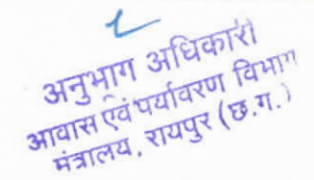 अनुभाग अधिकारी
आवास एवं पर्यावरण विभाग
मंत्रालय, रायपुर (छ.ग.)